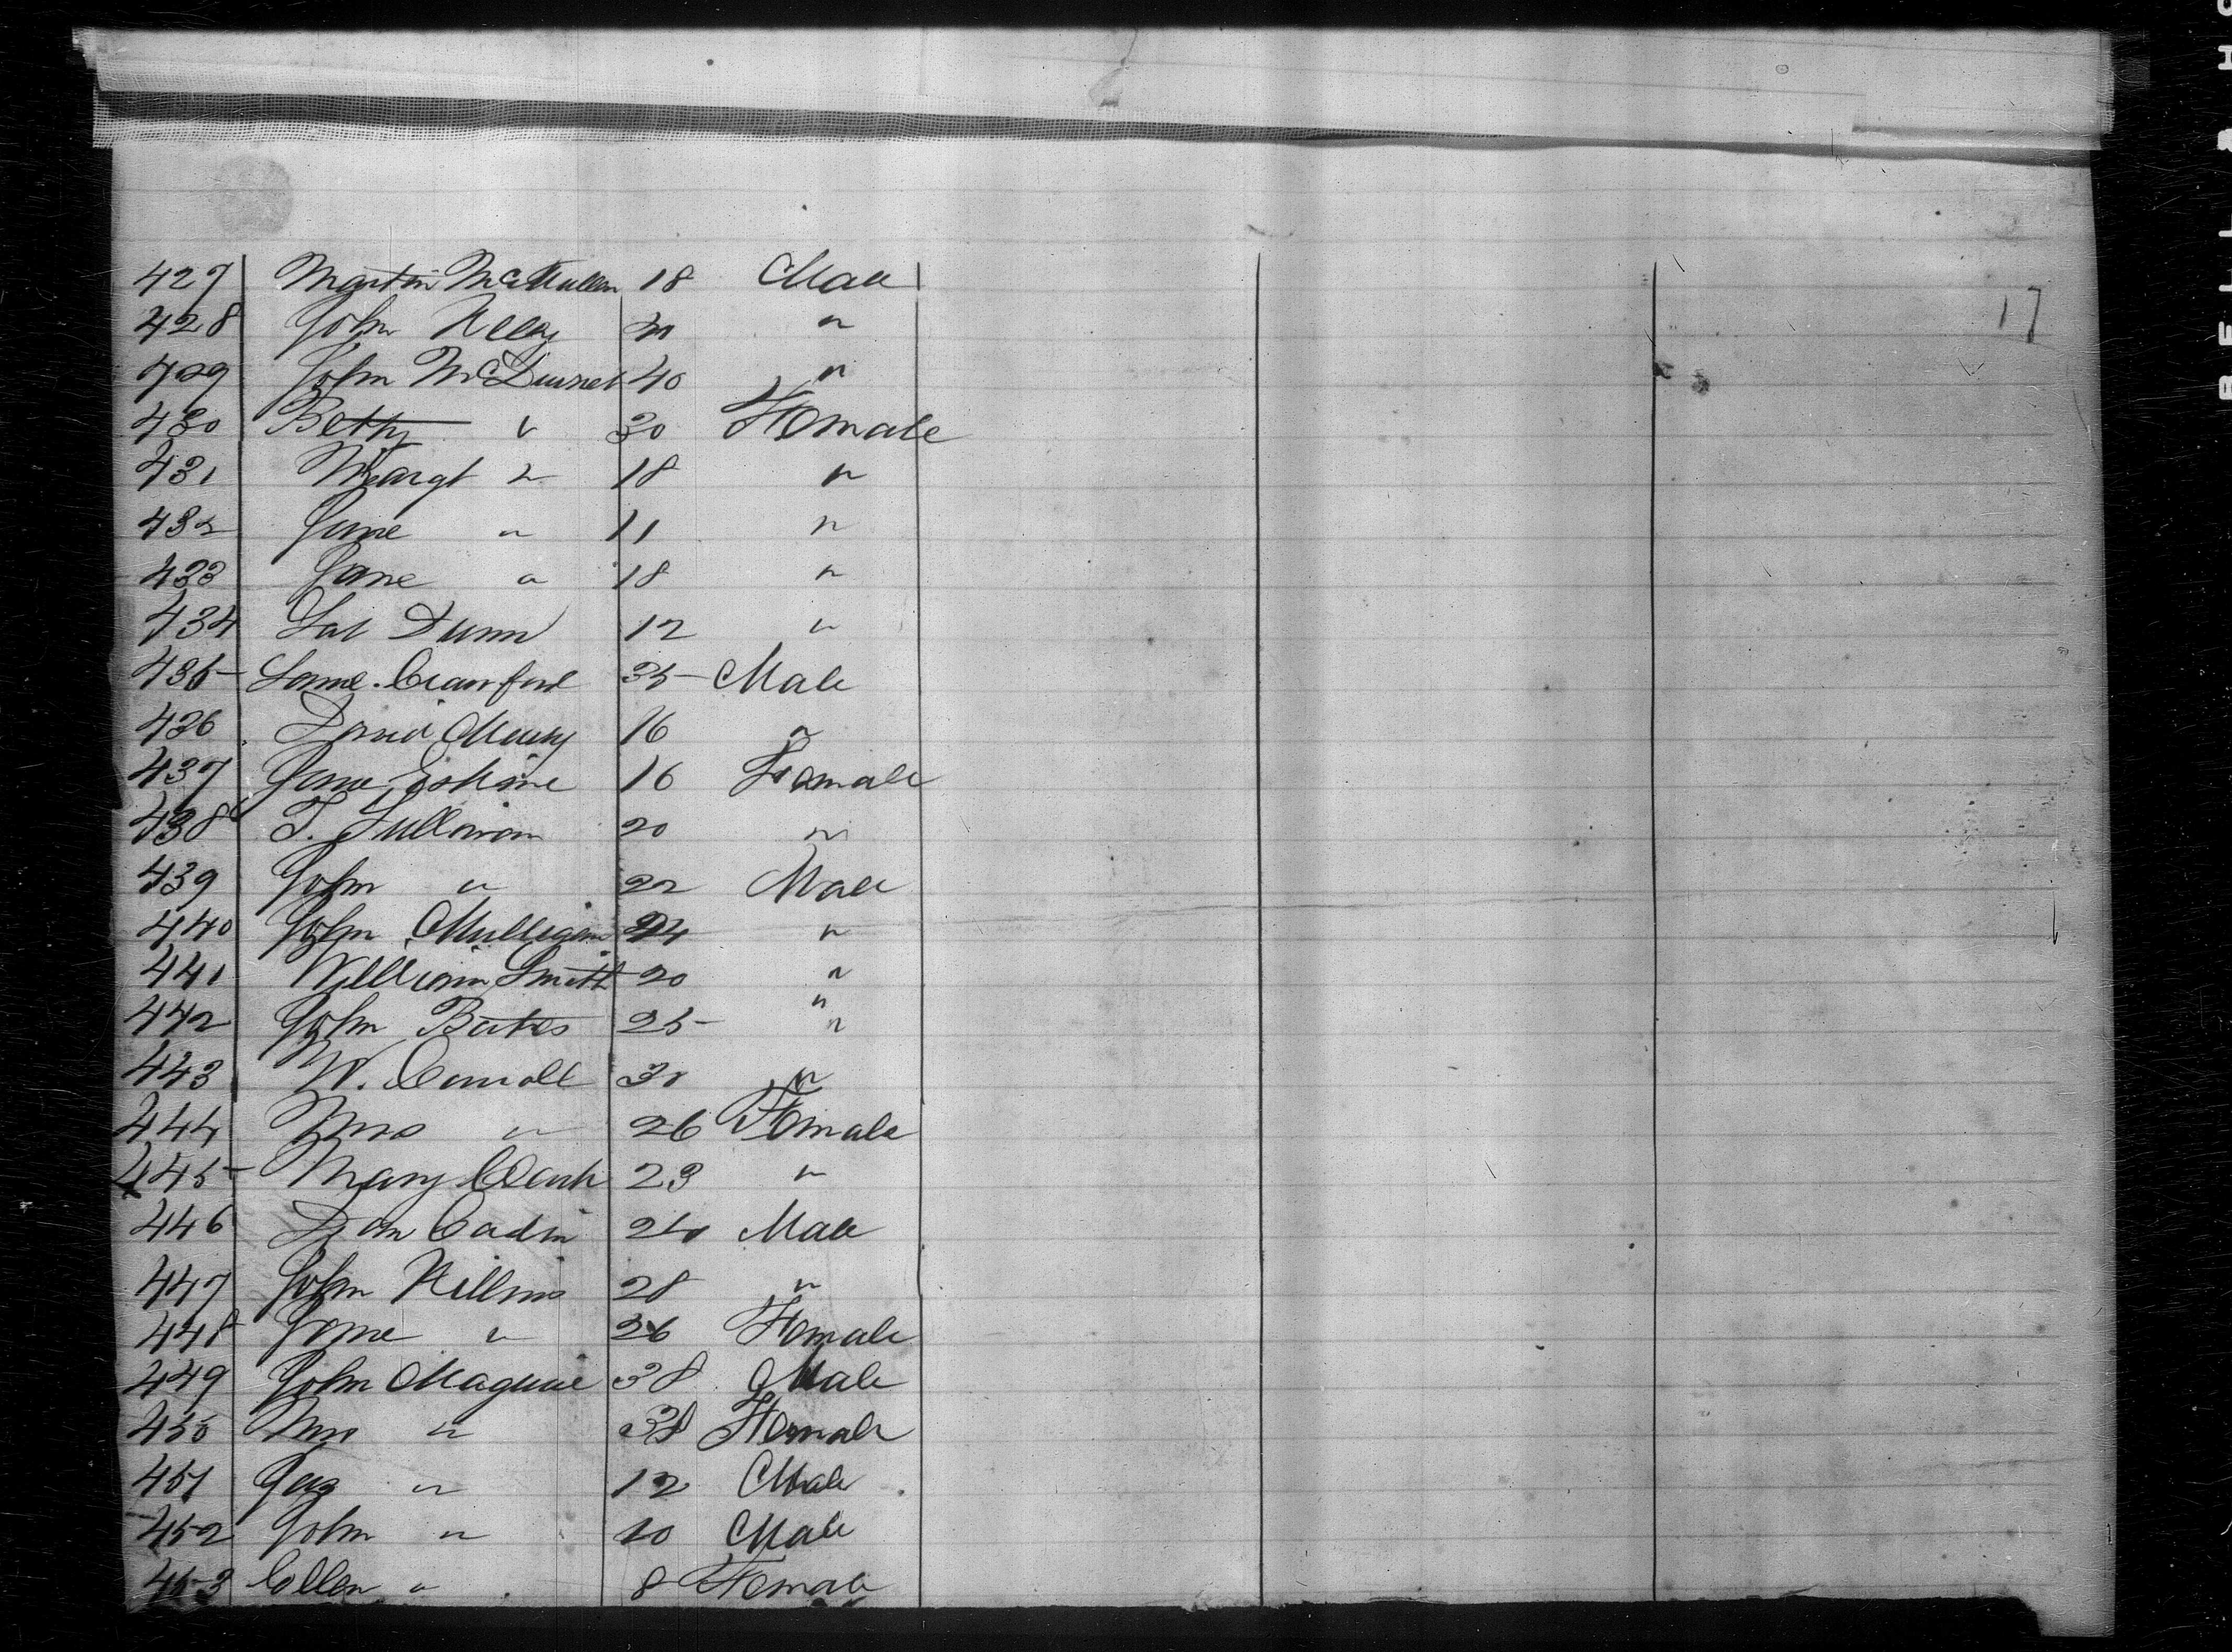 427 Martin McMullen 18 Male
428 John Kelly 30 "
17
429 John McDunnel 40 "
430 Betty " 30 Female
431 Margt " 18 "
432 Jane " 11 "
433 Jane " 18 "
434 Dunn 12 "
435 Crawford 35 Male
436 David 16 "
437 Jane Erskine 16 Female
438 T. Sullivan 20 "
439 John " 22 Male
440 John Mulligan 24 "
441 William Smith 20 "
442 John Bates 25 "
443 W. 30 "
444 Mrs " 26 Female
445 Mary 23 "
446 Male
447 John 28 "
448 Jane " 26 Female
449 John Maguire 38 Male
450 Mrs " 38 Female
451 " 12 Male
452 John " 10 Male
453 Ellen " 8 Female